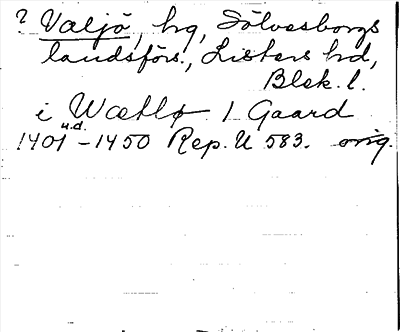 ? Valjö, hg, Sölvesborgs
landsförs., Listers hd,
Blek. l.
i Wætlø 1 Gaard
u.d.
1401 - 1450 Rep. U 583. orig.